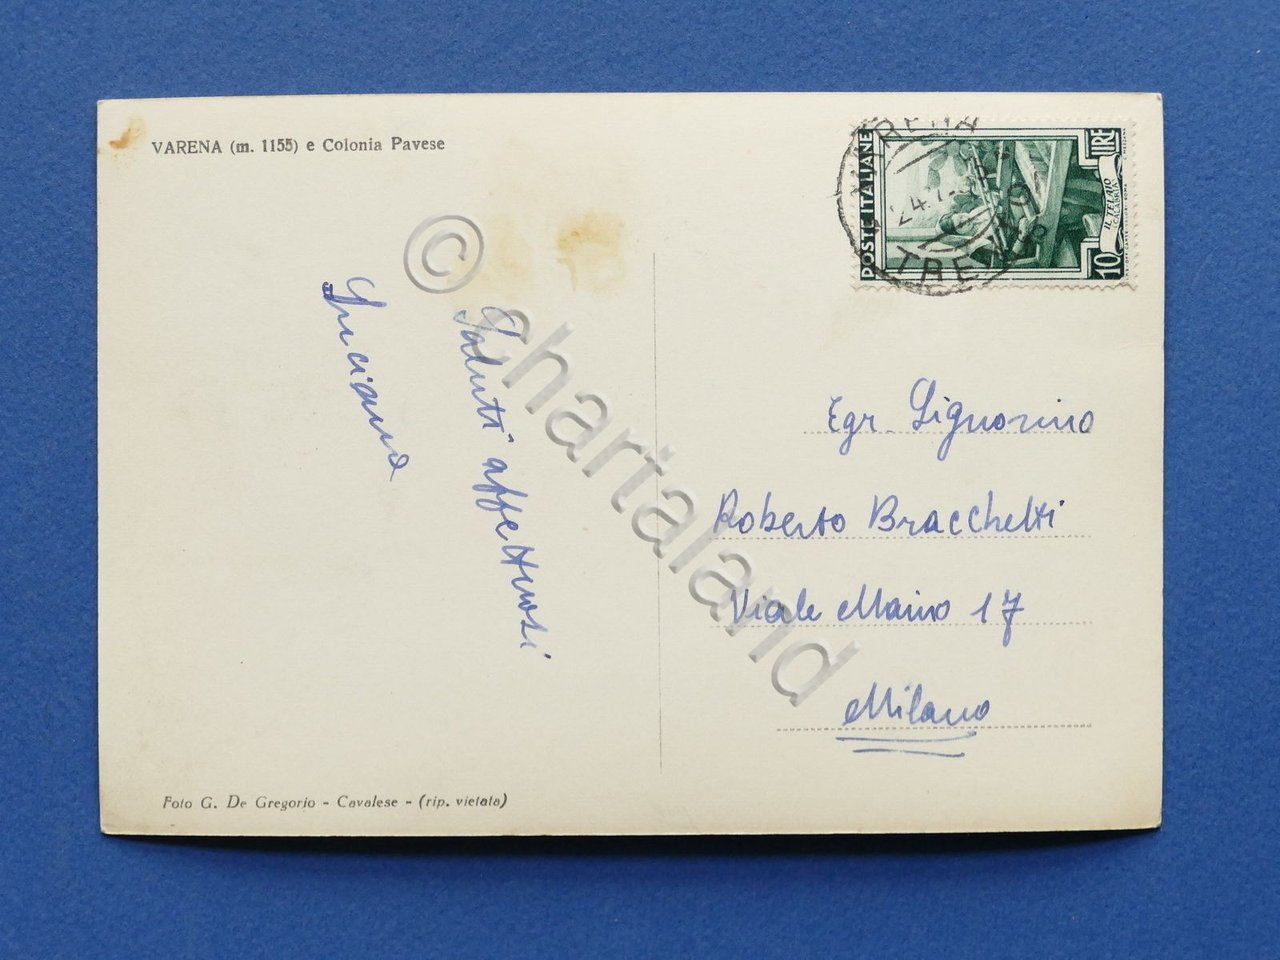 VARENA (m. 1155) e Colonia Pavese
Saluti affettuosi
Luciano
Foto G. De Gregorio - Cavalese - (rip. vietata)
POSTE ITALIANE
LIRE
10
IL TELAIO
CALABRIA
VARENA
24.7.
TRENTO
Egr. Signorino
Roberto Bracchetti
Viale Maino 17
Milano
© chartaland